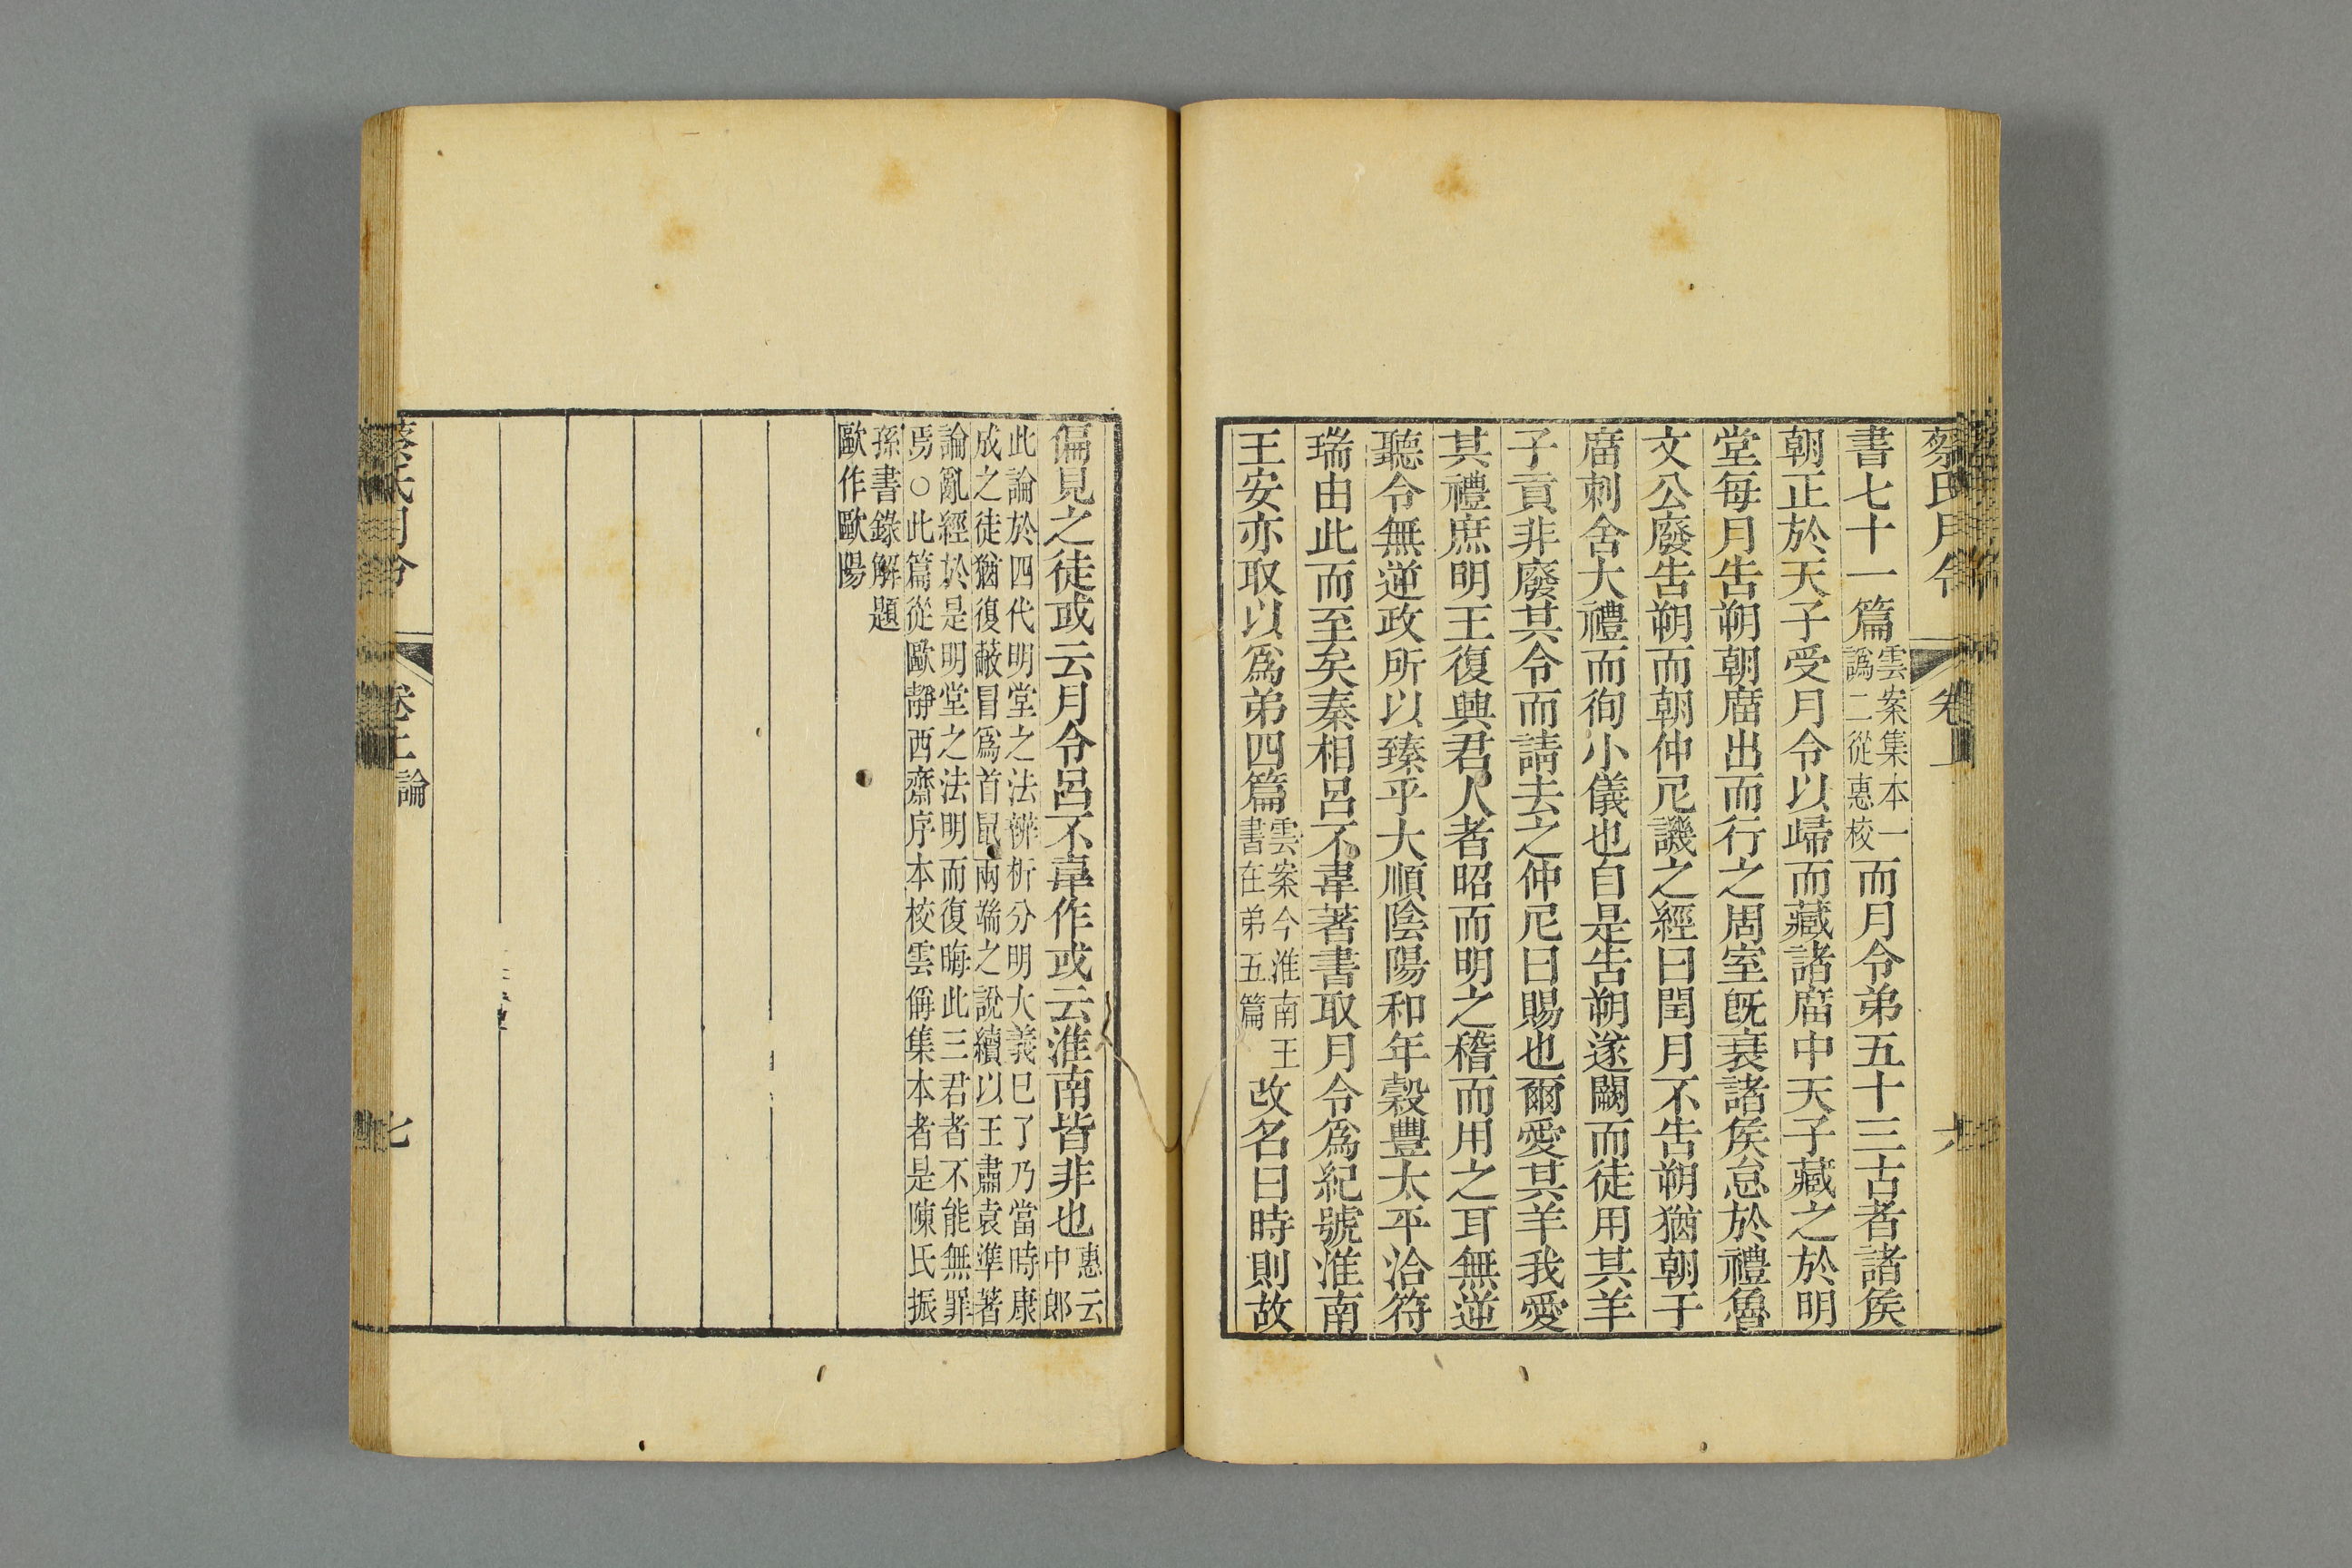 蔡氏月令 卷上 六
書七十一篇雲案集本一譌二從惠校而月令弟五十三古者諸矦
朝正於天子受月令以歸而藏諸庿中天子藏之於明
堂每月告朔朝庿出而行之周室旣衰諸矦怠於禮魯
文公廢告朔而朝仲尼譏之經曰閏月不告朔猶朝于
庿刺舍大禮而徇小儀也自是告朔遂闕而徒用其羊
子貢非廢其令而請去之仲尼曰賜也爾愛其羊我愛
其禮庶明王復興君人者昭而明之稽而用之耳無逆
聽令無逆政所以臻乎大順陰陽和年穀豐太平洽符
瑞由此而至矣秦相呂不韋著書取月令爲紀號淮南
王安亦取以爲弟四篇雲案今淮南王書在弟五篇改名曰時則故
偏見之徒或云月令呂不韋作或云淮南皆非也惠云中郎
此論於四代明堂之法辨析分明大義已了乃當時康
成之徒猶復蔽冒爲首鼠兩端之說續以王肅袁準著
論亂經於是明堂之法明而復晦此三君者不能無罪
焉○此篇從歐靜西齋序本校雲偁集本者是陳氏振
孫書錄解題
歐作歐陽
蔡氏月令 卷上 論 七